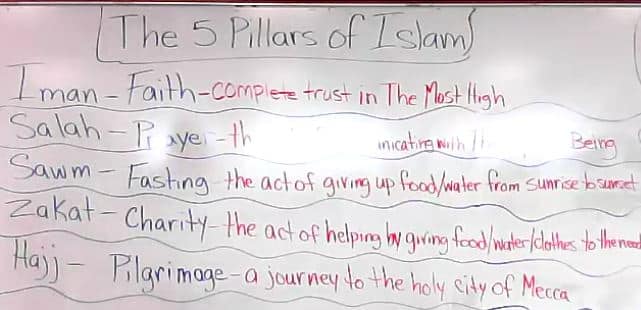 The 5 Pillars of Islam
Iman - Faith - complete trust in The Most High
Salah - Prayer - th nicating with Being
Sawm - Fasting the act of giving up food/water from sunrise to sunset
Zakat - Charity - the act of helping by giving food/water/clothes to the need
Hajj - Pilgrimage - a journey to the holy city of Mecca